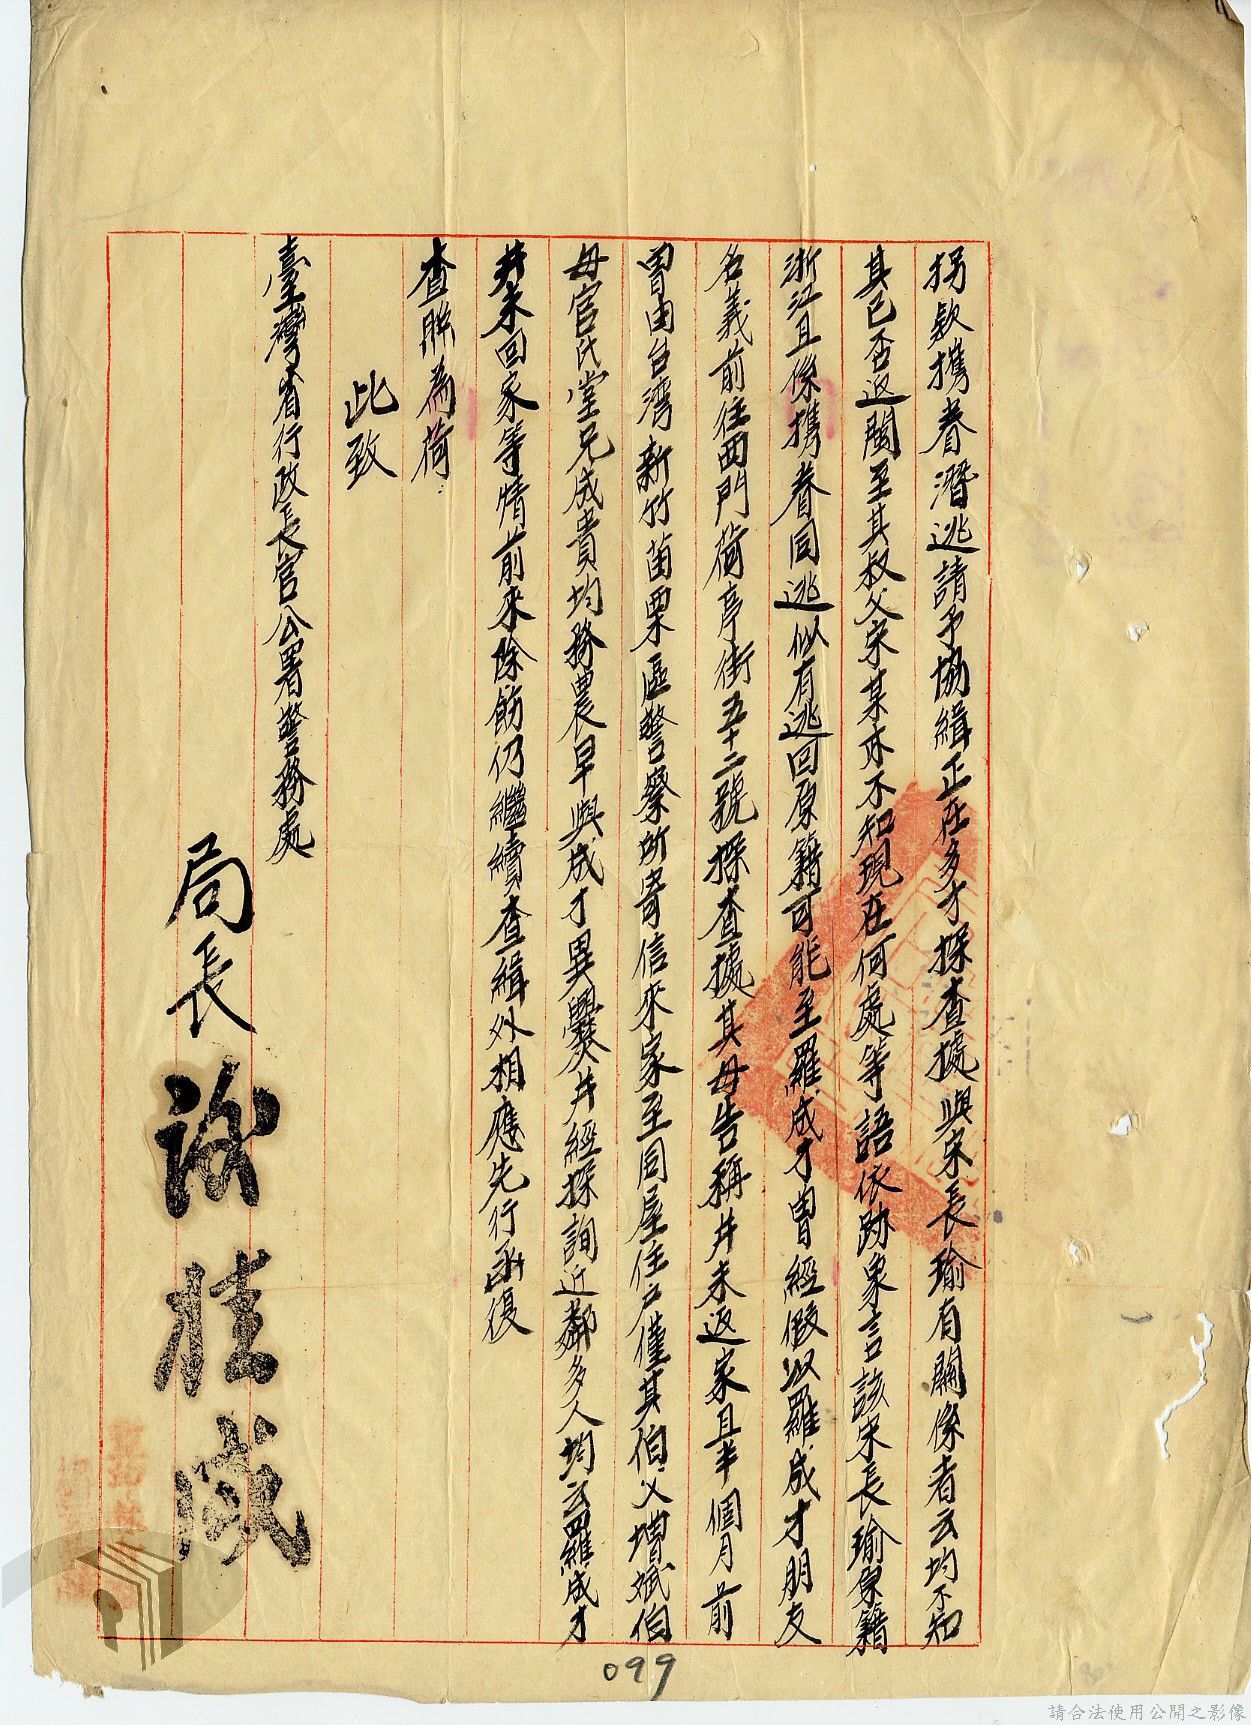 拐款攜眷潛逃請予協緝正在多才探查據與宋長瑜有關係者云均不知
其已否返閩至其叔父宋某亦不知現在何處等語依跡象言該宋長瑜原籍
浙江且係攜眷同逃似有逃回原籍可能至羅成才曾經假以羅成才朋友
名義前往西門荷亭街五十二號探查據其母告稱并未返家且半個月前
曾由台湾新竹苗栗區警察所寄信來家至同屋住户僅其伯父增斌伯
母官氏堂兄成貴均務農早與成才異爨并經探詢近鄰多人均云羅成才
并未回家等情前來除飭仍繼續查緝外相應先行函復
查照為荷
此致
臺灣省行政長官公署警務處
局長 勝威
099
請合法使用公開之影像